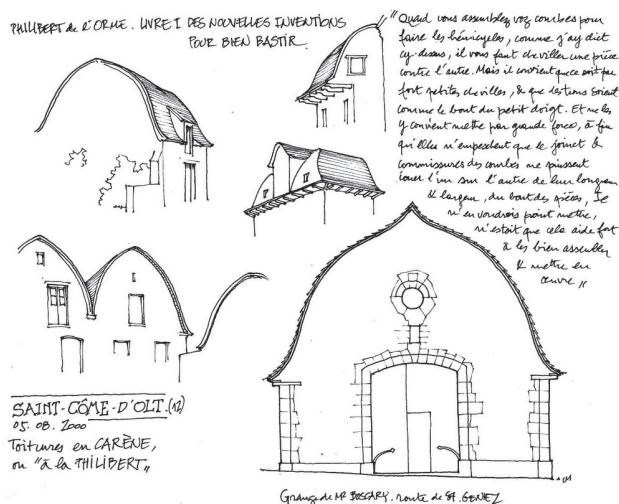 PHILIBERT de L'ORME. LIVRE I DES NOUVELLES INVENTIONS
POUR BIEN BASTIR.
"Quand vous assemblez voz courbes pour
faire les hémicycles, comme j'ay dict
cy-dessus, il vous faut cheviller une pièce
contre l'autre. Mais il convient que ce soit par
fort petites chevilles, & que les tenons soient
comme le bout du petit doigt. Et ne les
y convient mettre par grande force, à fin
qu'elles n'empeschent que le joinct &
commissures des courbes ne puissent
l'un sur l'autre de leur longueur
& largeur, du bout des pièces, Je
n'en voudrois point mettre,
n'estoit que cela aide fort
à les bien assembler
& mettre en
œuvre "
SAINT-CÔME-D'OLT.(12)
05. 08. 2000
Toitures en CARÈNE,
ou "à la PHILIBERT"
Grange de Mr BOSCARY. route de St. GENIEZ